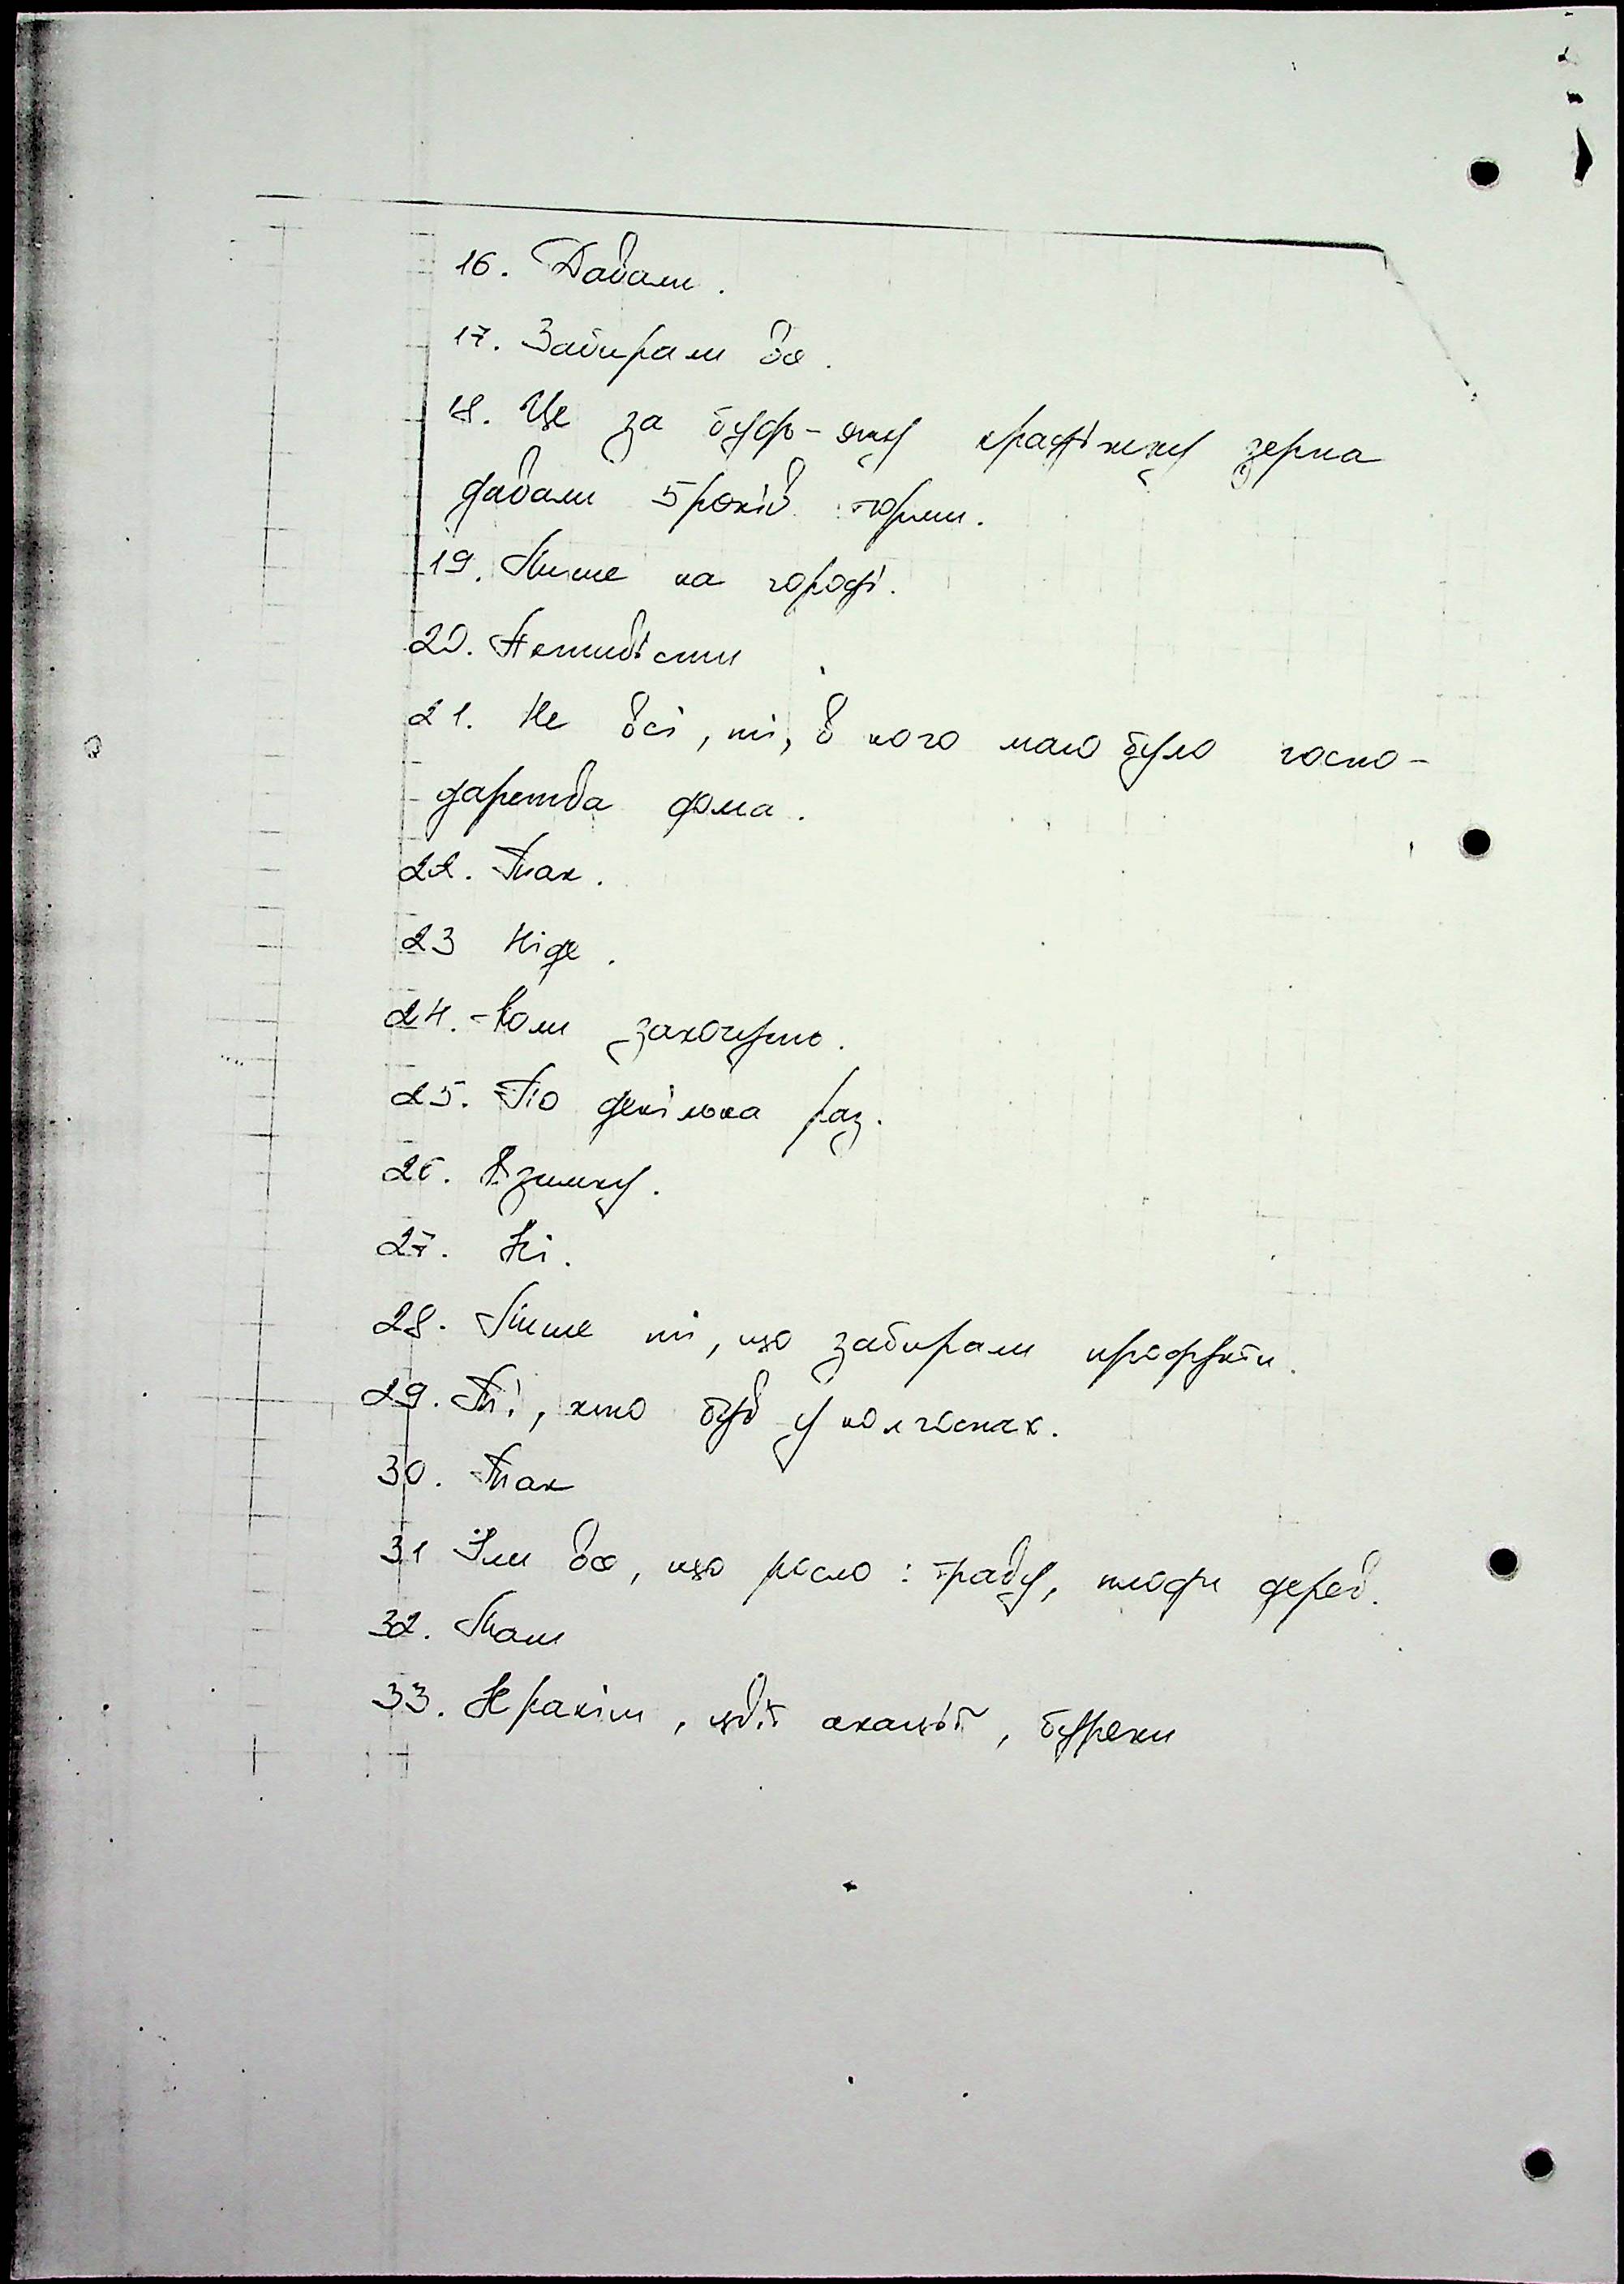 16. Давали.
17. Забирали все.
18. Це за будь-яку крадіжку зерна
давали 5 років тюрми.
19. Лише на городі.
20. Активісти
21. Не всі, ті, в кого мало було госпо-
дарства дома.
22. Так.
23 Ніде.
24. Коли захочуть.
25. По декілька раз.
26. Взимку.
27. Ні.
28. Лише ті, що забирали продукти.
29. Ті, хто був у колгоспах.
30. Так
31 Їли все, що росло: траву, плоди дерев.
32. Мали
33. Кропиви, цвіт акації, буряки